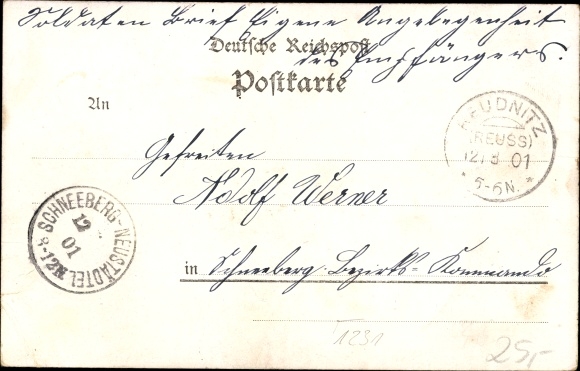 Soldaten Brief Eigene Angelegenheit
des Empfängers.
Deutsche Reichspost
Postkarte
An
Gefreiten
Adolf Werner
in Schneeberg Bezirks-Kommando
REUDNITZ
(REUSS)
12 3 01
* 5-6N. *
SCHNEEBERG-NEUSTÄDTEL
12
01
8-12N
1231
25,-